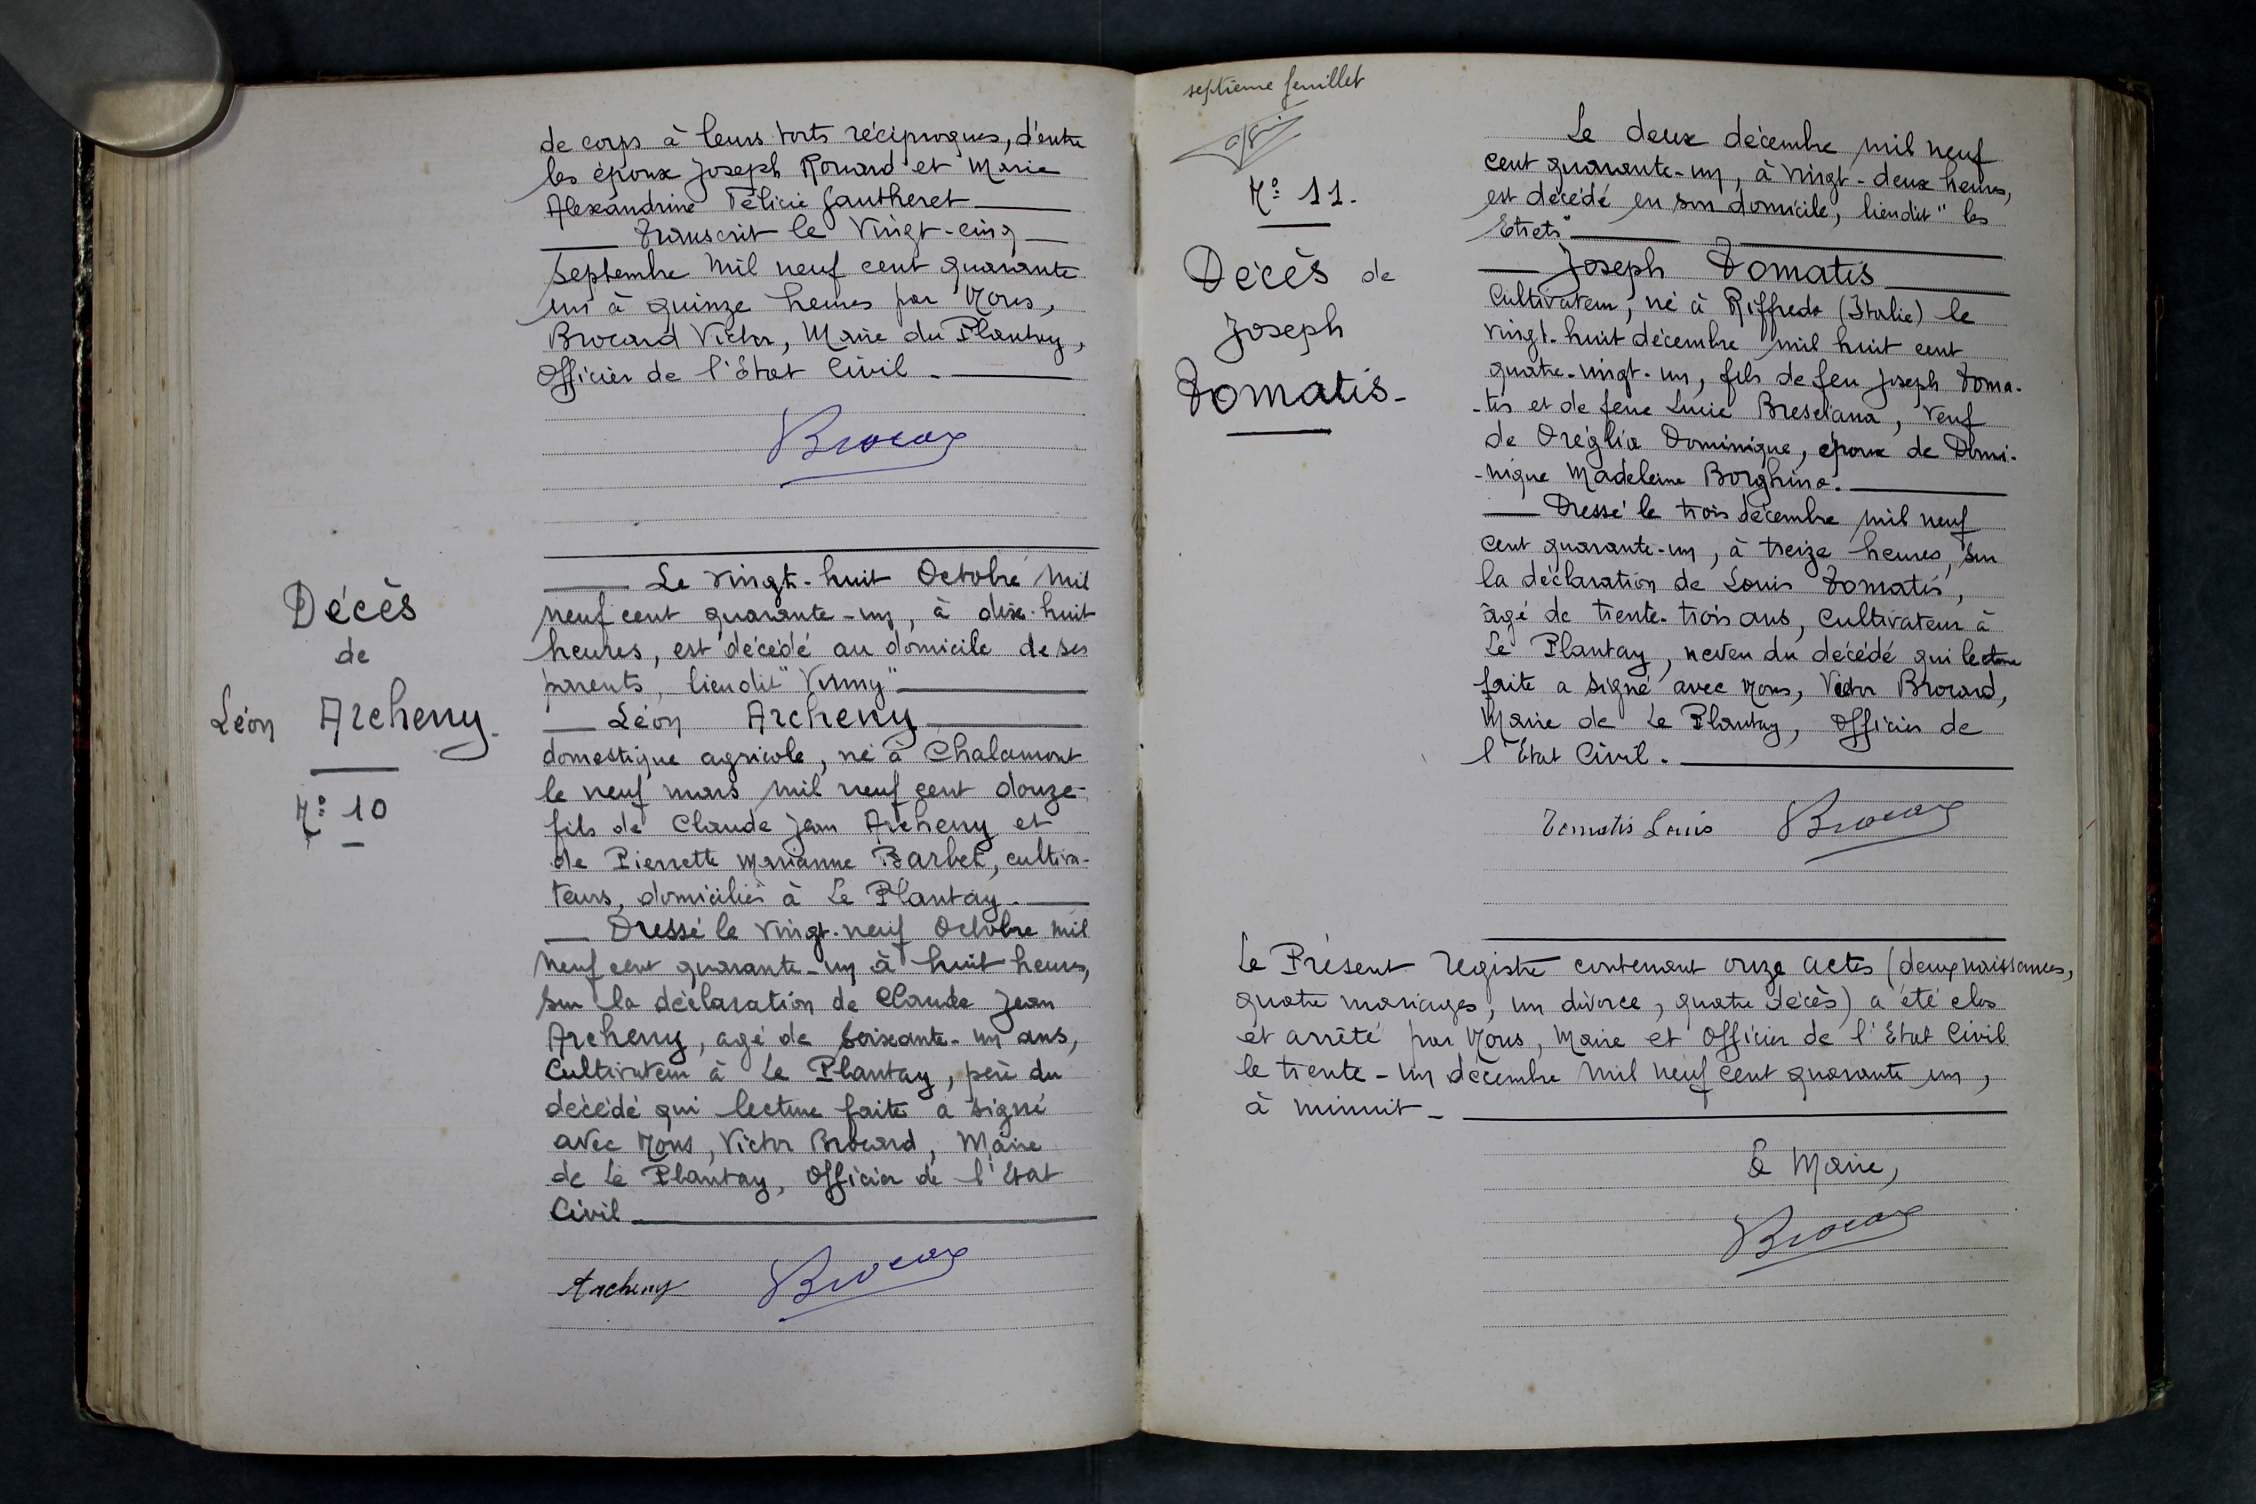 de corps à leurs torts réciproques, d'entre
les époux Joseph Rouard et Marie
Alexandrine Félicie Gautheret
Transcrit le Vingt-cinq
septembre mil neuf cent quarante
un à quinze heures par Nous,
Brocard Victor, Maire du Plantay,
Officier de l'État Civil.
Brocard
Décès
de
Léon Archeny.
N° 10
Le vingt-huit Octobre mil
neuf cent quarante-un, à dix-huit
heures, est décédé au domicile de ses
parents, lieudit "
Léon Archeny
domestique agricole, né à Chalamont
le neuf mars mil neuf cent douze-
fils de Claude Jean Archeny et
de Pierrette Marianne Barbet, cultiva-
teurs, domiciliés à Le Plantay.
Dressé le vingt-neuf Octobre mil
neuf cent quarante-un à huit heures,
sur la déclaration de Claude Jean
Archeny, agé de soixante-un ans,
Cultivateur à Le Plantay, père du
décédé qui lecture faite a signé
avec Nous, Victor Brocard, Maire
de Le Plantay, Officier de l'Etat
Civil
Archeny Brocard
septième feuillet
N° 11.
Décès de
Joseph
Tomatis-
Le deux décembre mil neuf
cent quarante-un, à vingt-deux heures,
est décédé en son domicile, lieudit "les
Etrets"
Joseph Tomatis
Cultivateur, né à Riffredo (Italie) le
vingt-huit décembre mil huit cent
quatre-vingt-un, fils de feu Joseph Toma-
-tis et de feue Lucie Bresciana, veuf
de Oréglia Dominique, époux de Domi-
-nique Madeleine Borghino.
Dressé le trois décembre mil neuf
cent quarante-un, à treize heures, sur
la déclaration de Louis Tomatis,
âgé de trente-trois ans, Cultivateur à
Le Plantay, neveu du décédé qui lecture
faite a signé avec Nous, Victor Brocard,
Maire de Le Plantay, Officier de
l'Etat Civil.
Tomatis Louis Brocard
Le Présent registre contenant onze actes (deux naissances,
quatre mariages, un divorce, quatre décès) a été clos
et arrêté par Nous, Maire et Officier de l'Etat Civil
le trente-un décembre mil neuf cent quarante un,
à minuit-
Le Maire,
Brocard